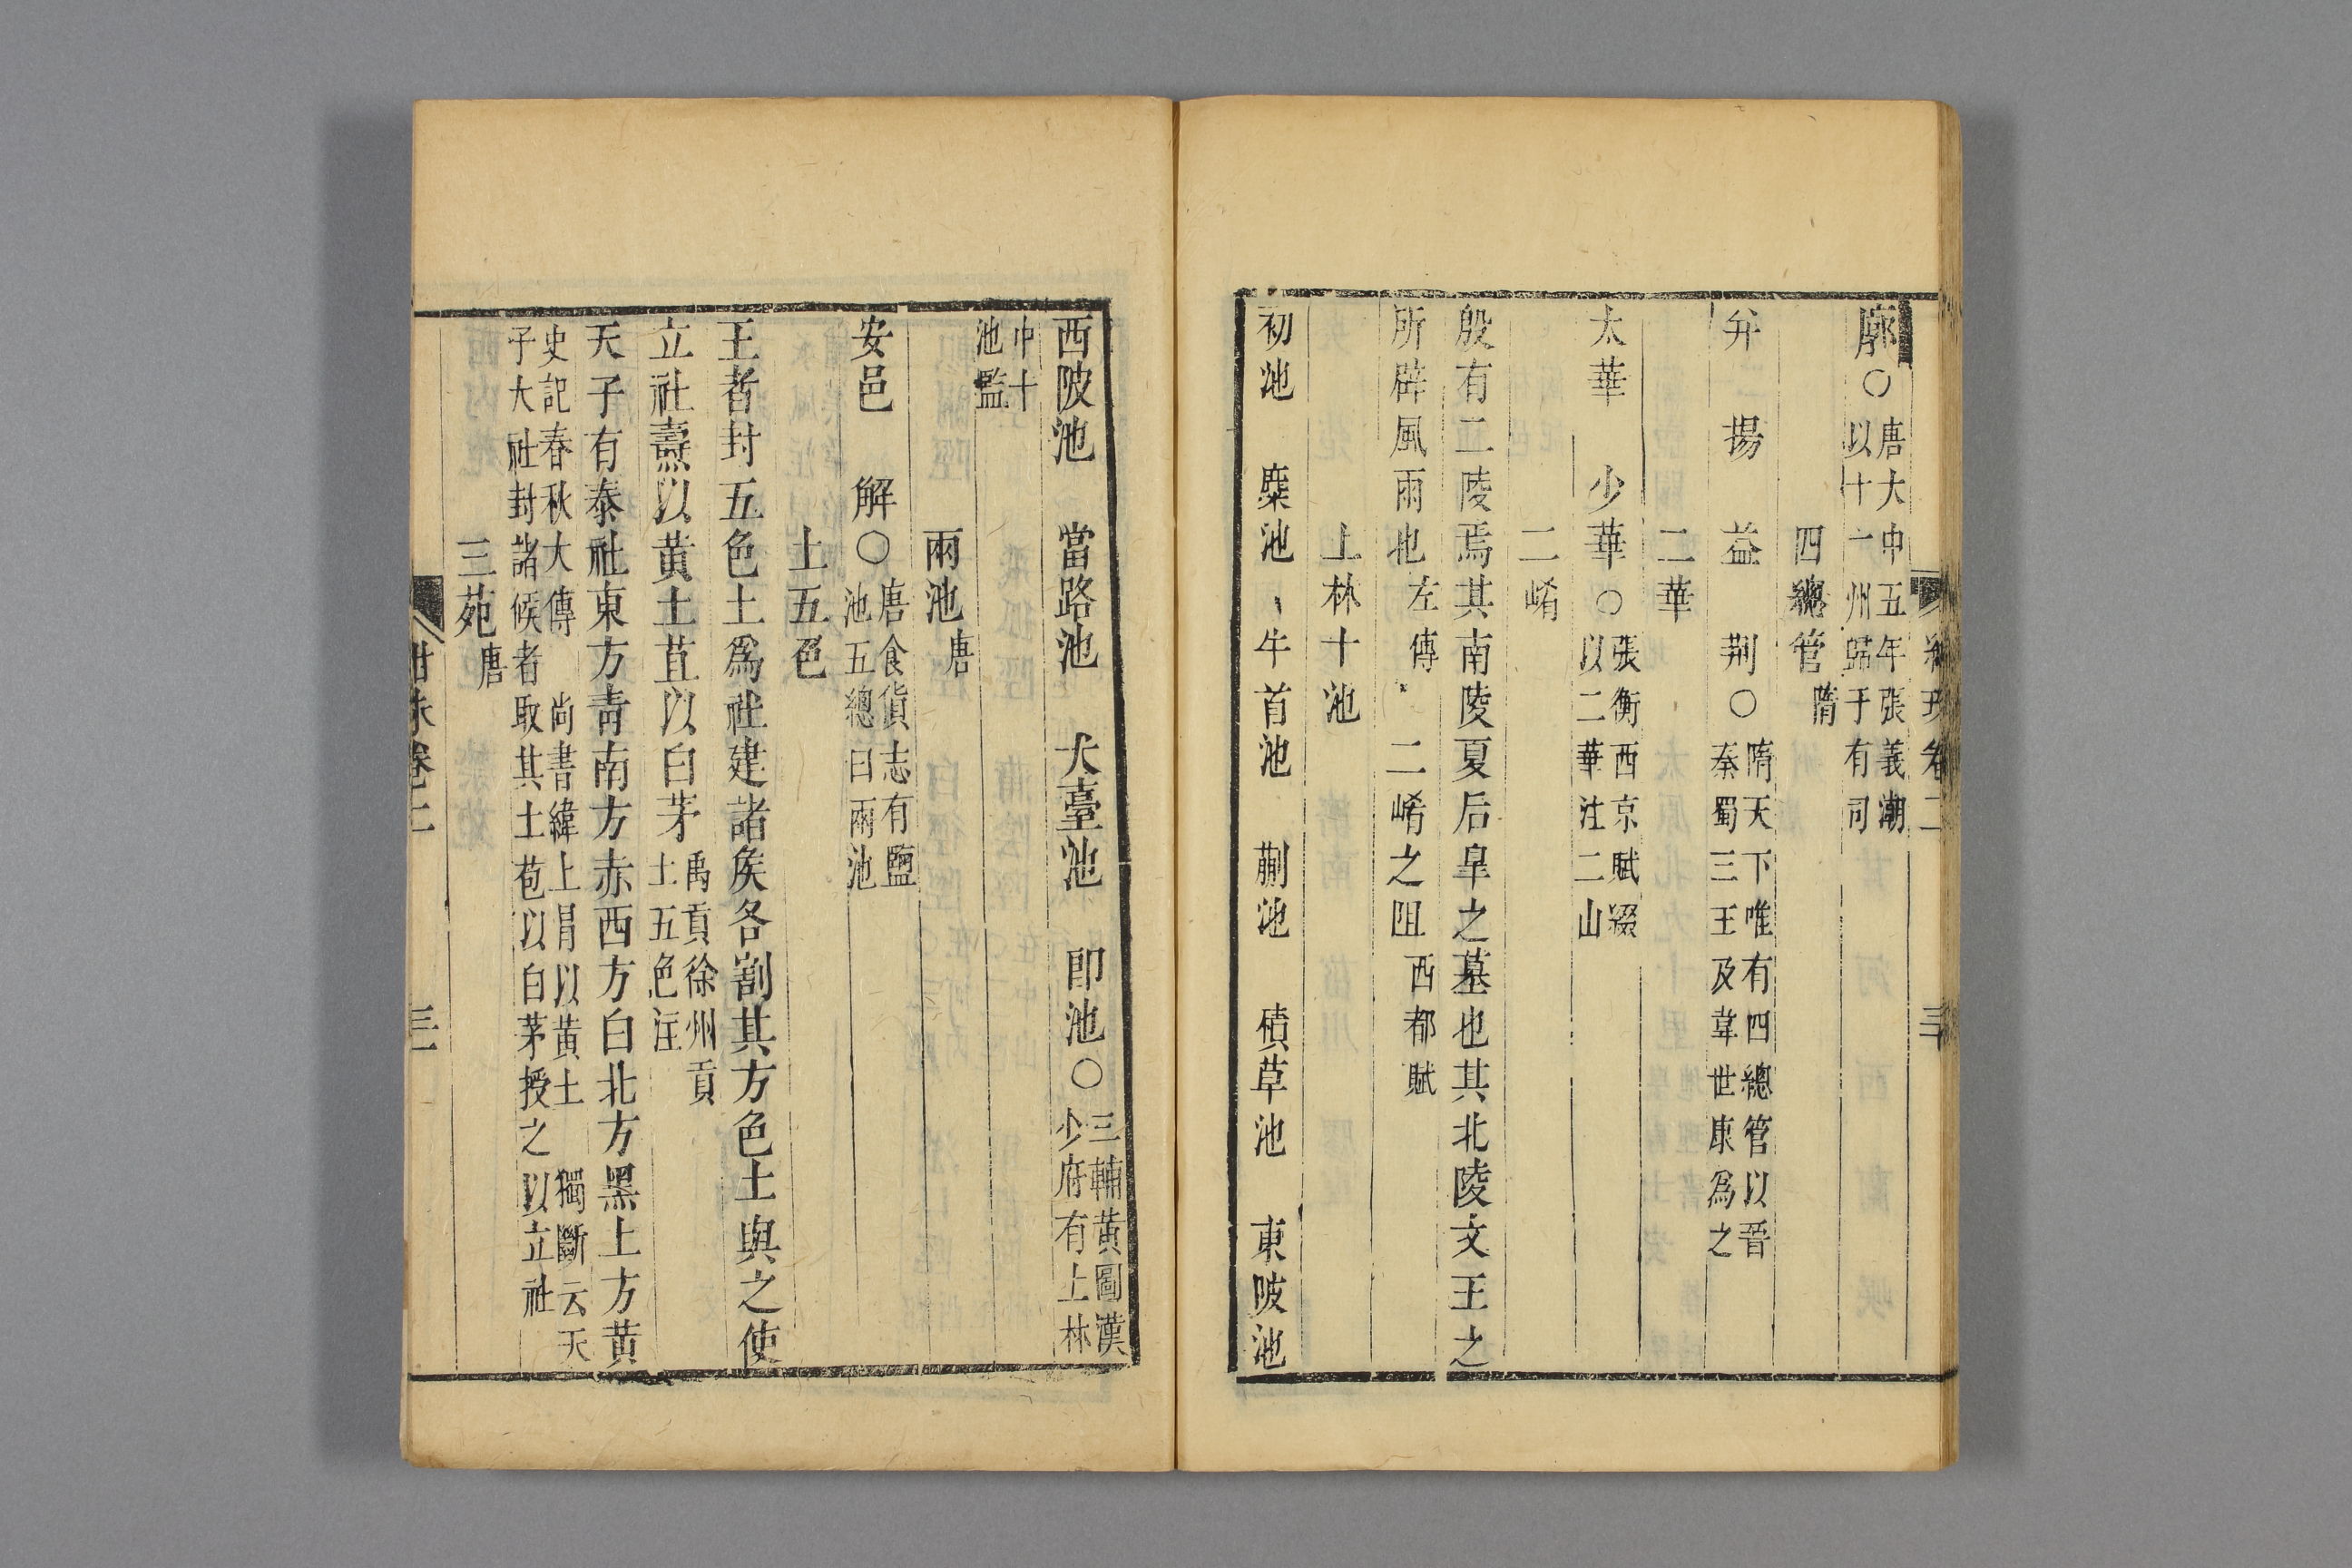 廓○唐大中五年張義潮
以十一州歸于有司
四總管隋
并　揚　益　荆○隋天下唯有四總管以晉
秦蜀三王及韋世康爲之
二華
太華　少華○張衡西京賦綴
以二華注二山
二崤
殽有二陵焉其南陵夏后皐之墓也其北陵文王之
所辟風雨也左傳　二崤之阻西都賦
上林十池
初池　麋池　牛首池　蒯池　積草池　東陂池
西陂池　當路池　犬臺池　郎池○三輔黄圖漢
少府有上林
中十
池監
兩池唐
安邑　解○唐食貨志有鹽
池五總曰兩池
土五色
王者封五色土爲社建諸矦各割其方色土與之使
立社燾以黄土苴以白茅禹貢徐州貢
土五色注
天子有泰社東方青南方赤西方白北方黑上方黄
史記春秋大傳　尚書緯上冒以黄土　獨斷云天
子大社封諸候者取其土苞以白茅授之以立社
三苑唐